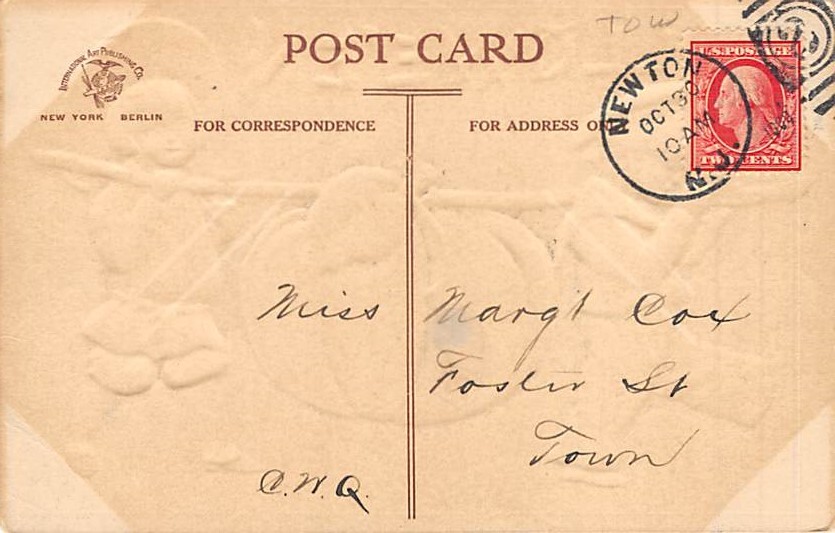 TOW
POST CARD
INTERNATIONAL ART PUBLISHING CO.
NEW YORK BERLIN
FOR CORRESPONDENCE
FOR ADDRESS
U.S. POSTAGE
TWO CENTS
NEWTON
OCT 30
10 AM
N.J.
Miss Margt Cox
Foster St
Town
C.W.Q.